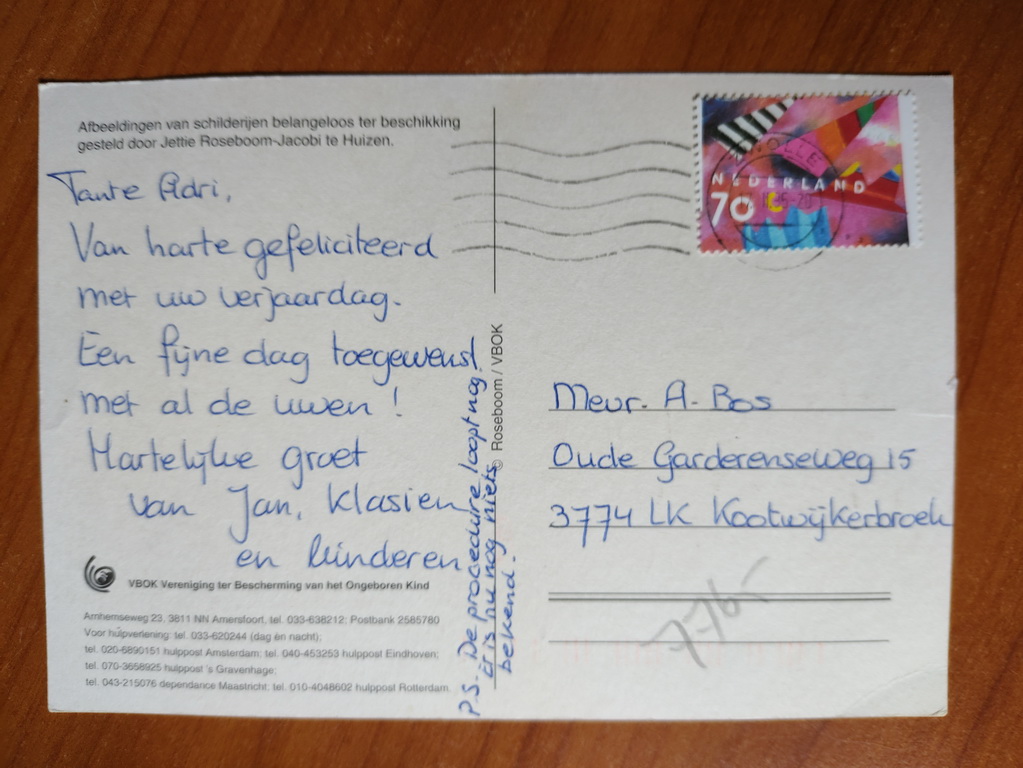 Afbeeldingen van schilderijen belangeloos ter beschikking
gesteld door Jettie Roseboom-Jacobi te Huizen.
Tante Adri,
Van harte gefeliciteerd
met uw verjaardag.
Een fijne dag toegewenst
met al de uwen!
Hartelijke groet
van Jan, Klasien
en kinderen
P.S. De procedure loopt nog!
Er is nu nog niets
bekend.
VBOK Vereniging ter Bescherming van het Ongeboren Kind
Arnhemseweg 23, 3811 NN Amersfoort, tel. 033-638212; Postbank 2585760
Voor hulpverlening: tel. 033-620244 (dag èn nacht);
tel. 020-6890151 hulppost Amsterdam; tel. 040-453253 hulppost Eindhoven;
tel. 070-3658925 hulppost 's Gravenhage;
tel. 043-215076 dependance Maastricht; tel. 010-4048602 hulppost Rotterdam.
© Roseboom / VBOK
NEDERLAND
70 c
Mevr. A. Bos
Oude Garderenseweg 15
3774 LK Kootwijkerbroek